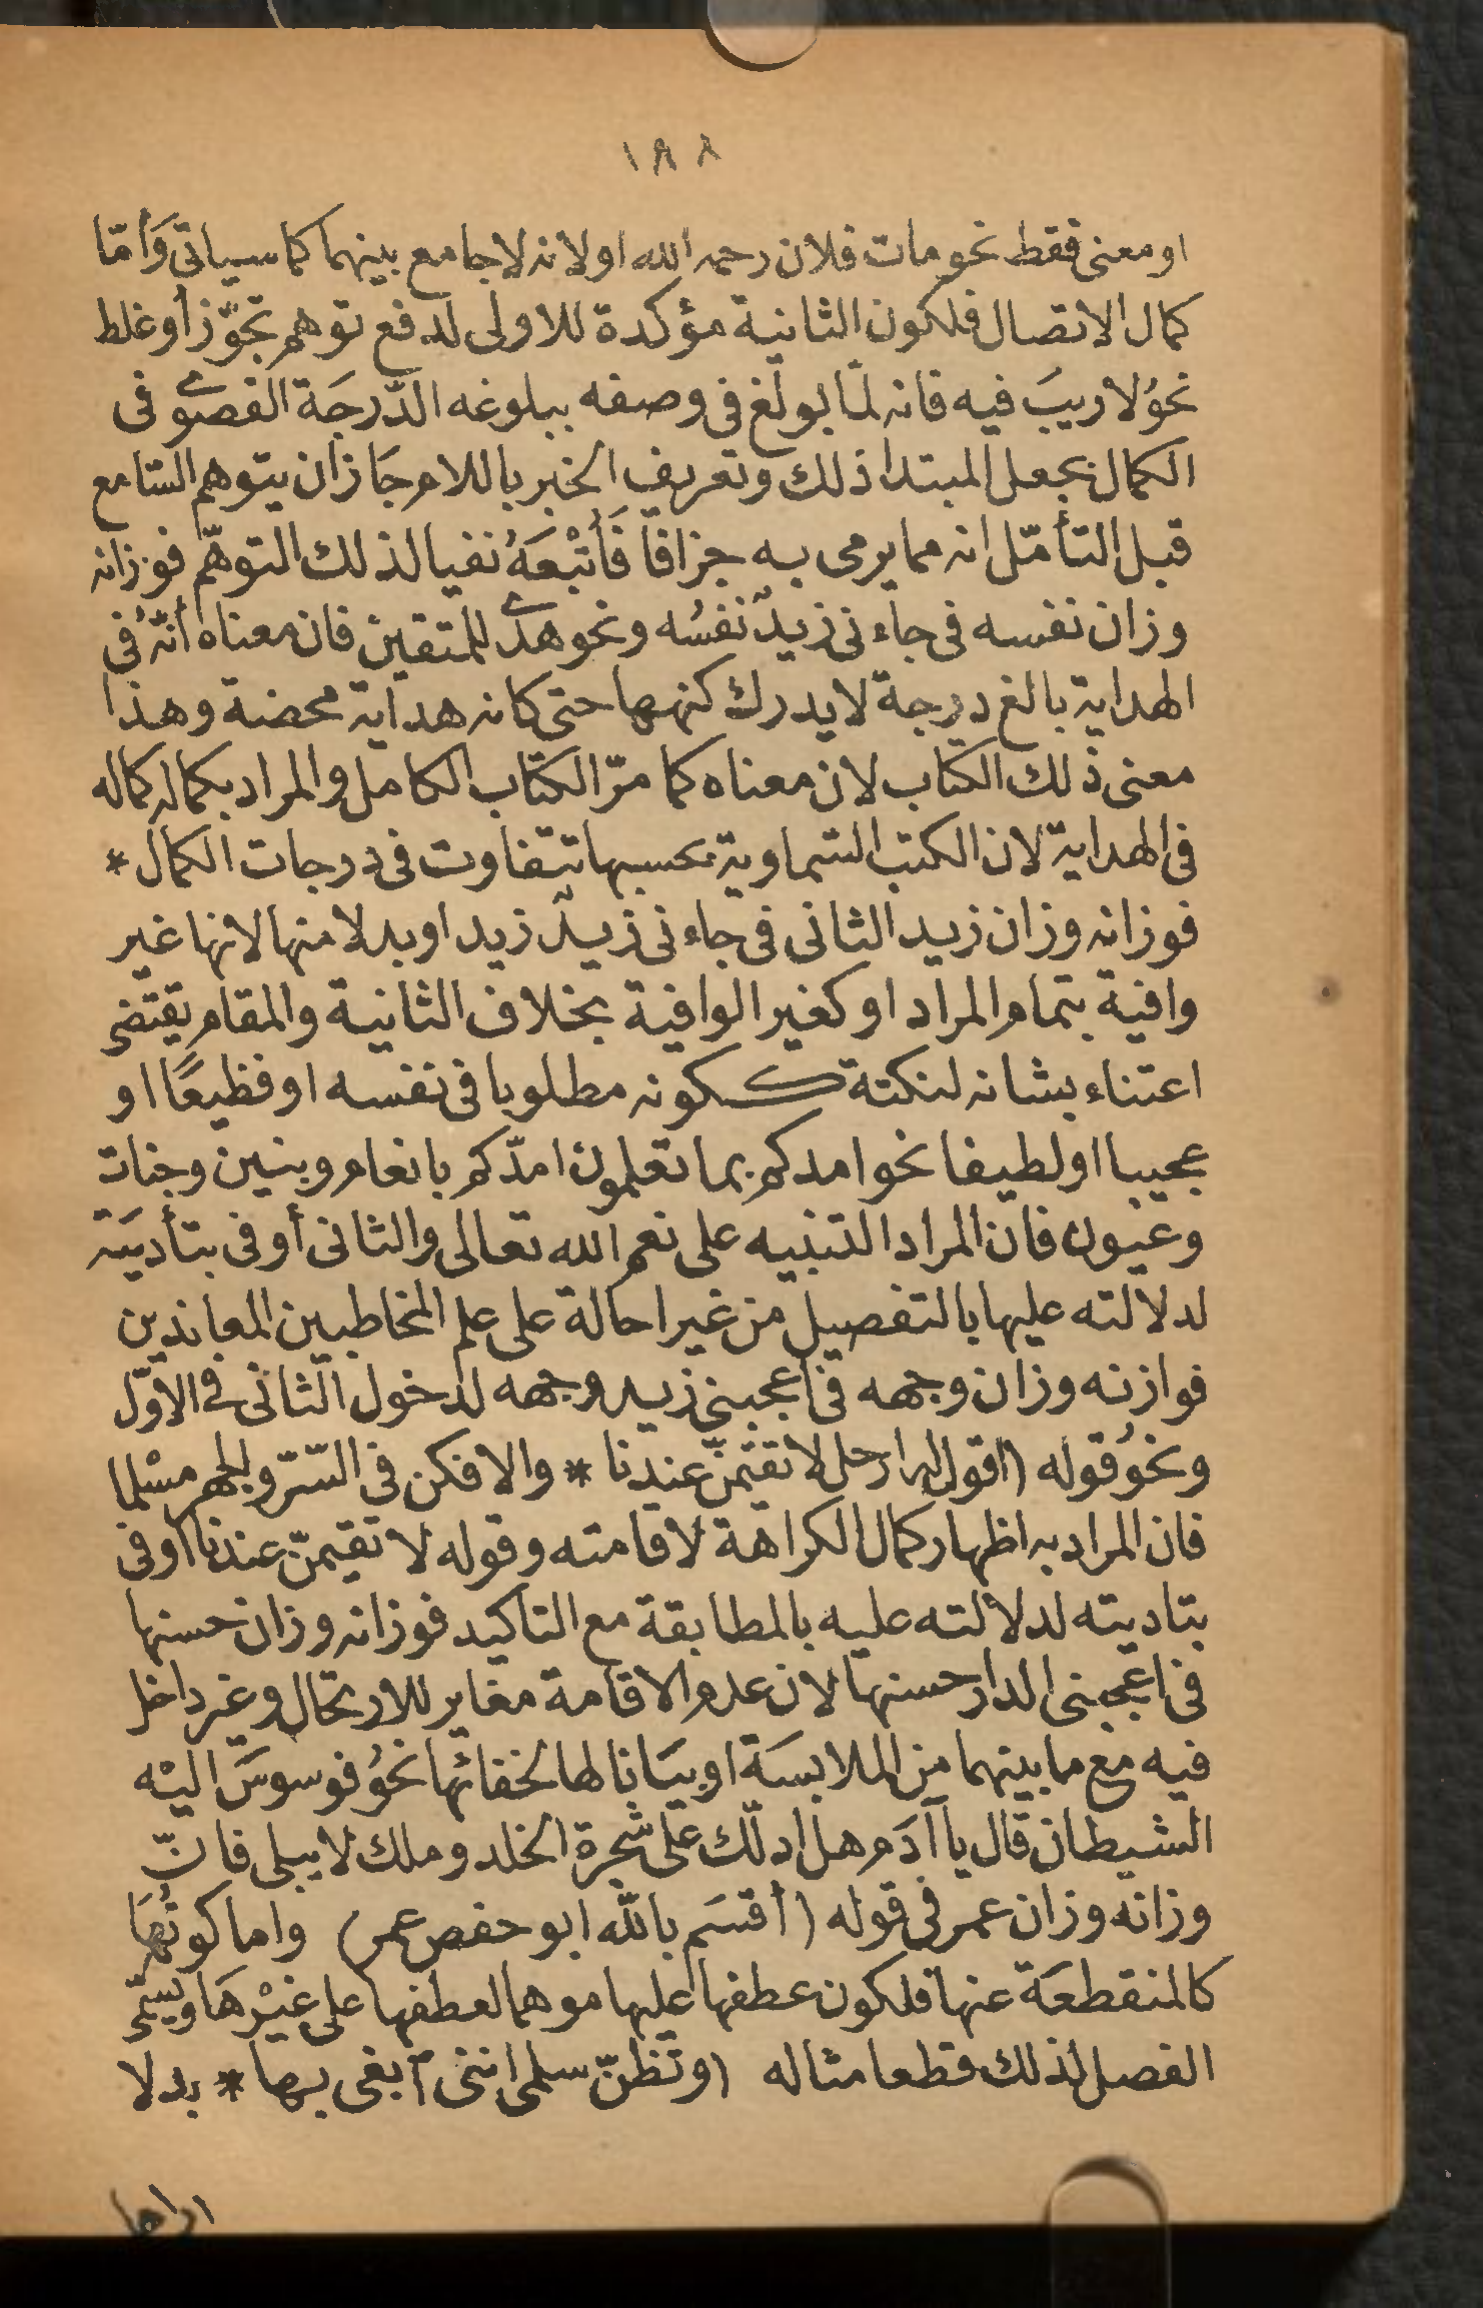 ١٨٨
او معنى فقط نحو مات فلان رحمه الله او لانه لا جامع بينهما كما سياتى وَأمّا
كمال الاتصال فلكون الثانية مؤكدة للاولى لدفع توهم تجوّز أو غلط
نحوُ لا ريبَ فيه فانه لمّا بولغ فى وصفه ببلوغه الدّرجَة القصوى فى
الكمال بجعل المبتدا ذلك وتعريف الخبر باللام جَاز ان يتوهم السّامع
قبل التأمّل انه مما يرمى به جزافا فَأُتْبعَهُ نفيا لذلك التوهّم فوزانه
وزان نفسه فى جاء نى زيدٌ نفسُه ونحو هدًى للمتقين فان معناه أنّهُ فى
الهداية بالغ درجة لا يدرك كنهها حتى كانه هداية محضة وهذا
معنى ذلك الكتاب لان معناه كما مرّ الكتاب الكامل والمراد بكماله كماله
فى الهداية لان الكتب السّماوية بحسبها تتفاوت فى درجات الكمال *
فوزانه وزان زيد الثانى فى جاء نى زيدٌ زيد او بدلا منها لانها غير
وافية بتمام المراد او كغير الوافية بخلاف الثانية والمقام يقتضى
اعتناء بشانه لنكتة ككونه مطلوبا فى نفسه او فظيعًا او
عجيبا او لطيفا نحو امدكم بما تعلمون امدّكم بانعام وبنين وجنات
وعيون فان المراد التنبيه على نعم الله تعالى والثانى أوفى بتأديَته
لدلالته عليها بالتفصيل من غير احالة على علم المخاطبين المعاندين
فوازنه وزان وجهه فى أعجبنى زيد وجهه لدخول الثانى فى الاوّل
ونحوُ قوله (اقول له ارحل لا تقيمنّ عندنا * والا فكن فى السّرّ والجهر مسْلما
فان المراد به اظهار كمال الكراهة لاقامته وقوله لا تقيمنّ عندنا أوفى
بتاديته لدلالته عليه بالمطابقة مع التاكيد فوزانه وزان حسنها
فى اعجبنى الدار حسنها لان عدم الاقامة مغاير للارتحال وغير داخل
فيه مع ما بينهما من الملابسَة او بيَانا لها لخفائها نحوُ فوسوسَ اليْه
الشيطان قال يا آدَم هل ادلّك على شجرة الخلد وملك لا يبلى فانّ
وزانه وزان عمر فى قوله (أقسَم بالله ابو حفص عمر) واما كونُهَا
كالمنقطعَة عنها فلكون عطفها عليها موهما لعطفها على غيْرهَا ويسمّى
الفصل لذلك قطعا مثاله (وتظنّ سلمى اننى أبغى بها * بدلا
اراها